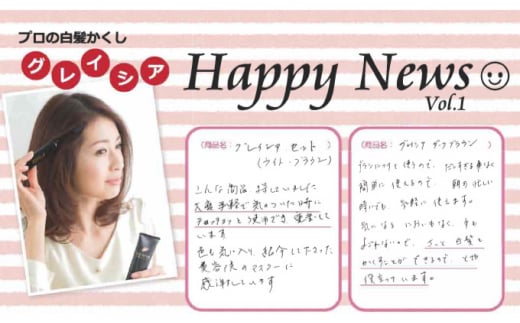 プロの白髪かくし
グレイシア
Happy News
Vol.1
(商品名: グレイシア セット )
(ライト・ブラウン)
こんな商品 探していました
大変手軽で気がついた時に
チョンチョンと使用でき 重宝して
います
色も気に入り 紹介して下さった
美容院のマスターに
感謝しています
(商品名: グレイシア ダークブラウン )
ブラシにつけて使うので、
簡単に使えるので、朝の忙しい
時にでも、気軽に使えます。
気になる においもなく、手も
よごれないので、 白髪を
かくすことができるので、とても
役立っています。